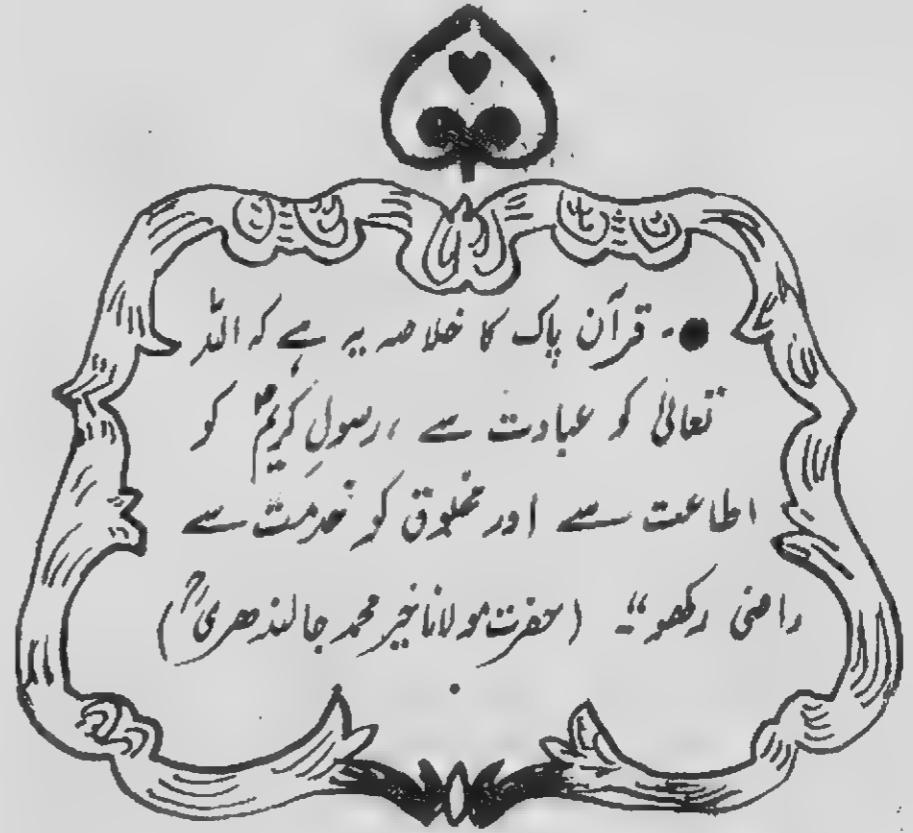 ●- قرآن پاک کا خلاصہ یہ ہے کہ اللہ
تعالیٰ کو عبادت سے ، رسولِ کریمؐ کو
اطاعت سے اور مخلوق کو خدمت سے
راضی رکھو“۔ (حضرت مولانا خیر محمد جالندھریؒ)